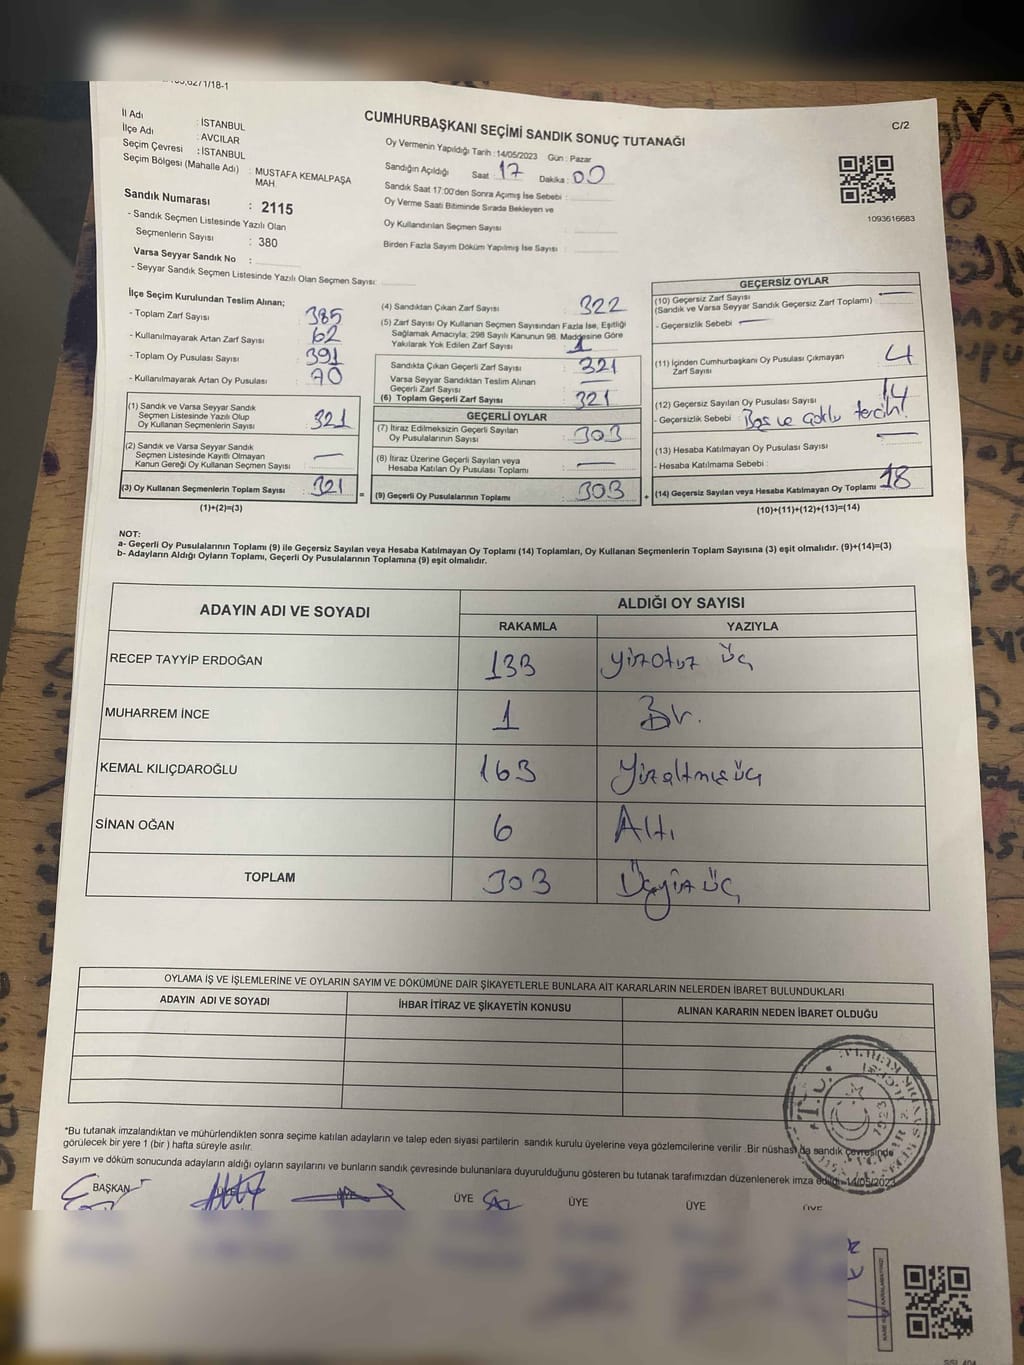 CUMHURBAŞKANI SEÇİMİ SANDIK SONUÇ TUTANAĞI
C/2
İl Adı : İSTANBUL
İlçe Adı : AVCILAR
Seçim Çevresi : İSTANBUL
Seçim Bölgesi (Mahalle Adı) : MUSTAFA KEMALPAŞA MAH.
Sandık Numarası : 2115
- Sandık Seçmen Listesinde Yazılı Olan
Seçmenlerin Sayısı : 380
Varsa Seyyar Sandık No :
- Seyyar Sandık Seçmen Listesinde Yazılı Olan Seçmen Sayısı:
Oy Vermenin Yapıldığı Tarih : 14/05/2023 Gün : Pazar
Sandığın Açıldığı Saat : 17 Dakika : 00
Sandık Saat 17:00'den Sonra Açımış İse Sebebi :
Oy Verme Saati Bitiminde Sırada Bekleyen ve
Oy Kullandırılan Seçmen Sayısı :
Birden Fazla Sayım Döküm Yapılmış İse Sayısı :
1093616683
İlçe Seçim Kurulundan Teslim Alınan;
- Toplam Zarf Sayısı : 385
- Kullanılmayarak Artan Zarf Sayısı : 62
- Toplam Oy Pusulası Sayısı : 391
- Kullanılmayarak Artan Oy Pusulası : 70
(1) Sandık ve Varsa Seyyar Sandık
Seçmen Listesinde Yazılı Olup
Oy Kullanan Seçmenlerin Sayısı : 321
(2) Sandık ve Varsa Seyyar Sandık
Seçmen Listesinde Kayıtlı Olmayan
Kanun Gereği Oy Kullanan Seçmen Sayısı : —
(3) Oy Kullanan Seçmenlerin Toplam Sayısı : 321
(1)+(2)=(3)
(4) Sandıktan Çıkan Zarf Sayısı : 322
(5) Zarf Sayısı Oy Kullanan Seçmen Sayısından Fazla İse, Eşitliği
Sağlamak Amacıyla, 298 Sayılı Kanunun 98. Maddesine Göre
Yakılarak Yok Edilen Zarf Sayısı : 1
Sandıkta Çıkan Geçerli Zarf Sayısı : 321
Varsa Seyyar Sandıktan Teslim Alınan
Geçerli Zarf Sayısı : —
(6) Toplam Geçerli Zarf Sayısı : 321
GEÇERLİ OYLAR
(7) İtiraz Edilmeksizin Geçerli Sayılan
Oy Pusulalarının Sayısı : 303
(8) İtiraz Üzerine Geçerli Sayılan veya
Hesaba Katılan Oy Pusulası Toplamı : —
(9) Geçerli Oy Pusulalarının Toplamı : 303
GEÇERSİZ OYLAR
(10) Geçersiz Zarf Sayısı : —
(Sandık ve Varsa Seyyar Sandık Geçersiz Zarf Toplamı)
- Geçersizlik Sebebi : —
(11) İçinden Cumhurbaşkanı Oy Pusulası Çıkmayan
Zarf Sayısı : 4
(12) Geçersiz Sayılan Oy Pusulası Sayısı : 14
- Geçersizlik Sebebi : Boş ve Çoklu tercih
(13) Hesaba Katılmayan Oy Pusulası Sayısı : —
- Hesaba Katılmama Sebebi :
(14) Geçersiz Sayılan veya Hesaba Katılmayan Oy Toplamı : 18
(10)+(11)+(12)+(13)=(14)
NOT:
a- Geçerli Oy Pusulalarının Toplamı (9) ile Geçersiz Sayılan veya Hesaba Katılmayan Oy Toplamı (14) Toplamları, Oy Kullanan Seçmenlerin Toplam Sayısına (3) eşit olmalıdır. (9)+(14)=(3)
b- Adayların Aldığı Oyların Toplamı, Geçerli Oy Pusulalarının Toplamına (9) eşit olmalıdır.
ADAYIN ADI VE SOYADI
ALDIĞI OY SAYISI
RAKAMLA YAZIYLA
RECEP TAYYİP ERDOĞAN 133 yüzotuz üç
MUHARREM İNCE 1 Bir.
KEMAL KILIÇDAROĞLU 163 Yüzaltmışüç
SİNAN OĞAN 6 Altı
TOPLAM 303 Üçyüz üç
OYLAMA İŞ VE İŞLEMLERİNE VE OYLARIN SAYIM VE DÖKÜMÜNE DAİR ŞİKAYETLERLE BUNLARA AİT KARARLARIN NELERDEN İBARET BULUNDUKLARI
ADAYIN ADI VE SOYADI İHBAR İTİRAZ VE ŞİKAYETİN KONUSU ALINAN KARARIN NEDEN İBARET OLDUĞU
*Bu tutanak imzalandıktan ve mühürlendikten sonra seçime katılan adayların ve talep eden siyasi partilerin sandık kurulu üyelerine veya gözlemcilerine verilir. Bir nüshası da sandık çevresinde
görülecek bir yere 1 (bir) hafta süreyle asılır.
Sayım ve döküm sonucunda adayların aldığı oyların sayılarını ve bunların sandık çevresinde bulunanlara duyurulduğunu gösteren bu tutanak tarafımızdan düzenlenerek imza edildi. 14/05/2023
T.C.
1923
BAŞKAN ÜYE ÜYE ÜYE ÜYE